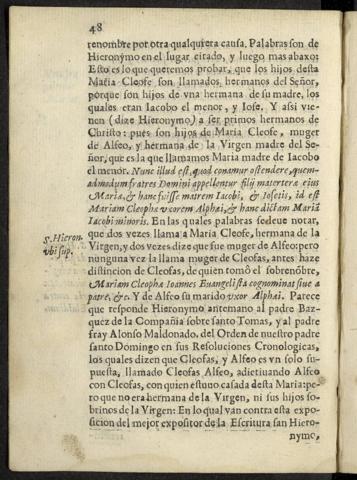 48
renombre por otra qualquiera causa. Palabras son de
Hieronymo en el lugar citado, y luego mas abaxo:
Esto es lo que queremos probar, que los hijos desta
Maria Cleofe son llamados, hermanos del Señor,
porque son hijos de vna hermana de su madre, los
quales eran Iacobo el menor, y Iose. Y assi vie-
nen (dize Hieronymo) a ser primos hermanos de
Christo: pues son hijos de Maria Cleofe, muger
de Alfeo, y hermana de la Virgen madre del Se-
ñor, que es la que llamamos Maria madre de Iacobo
el menor. Nunc illud est, quod conamur ostendere, quem-
admodum fratres Domini appellentur filij materteræ eius
Mariæ, & hanc fuisse matrem Iacobi, & Iosetis, id est
Mariam Cleophæ vxorem Alphæi, & hanc dictam Mariã
Iacobi minoris. En las quales palabras se deue notar,
que dos vezes llama a Maria Cleofe, hermana de la
Virgen, y dos vezes dize que fue muger de Alfeo: pero
nunguna vez la llama muger de Cleofas, antes haze
distincion de Cleofas, de quien tomô el sobrenôbre,
Mariam Cleophæ Ioannes Euangelista cognominat siue a
patre, &c. Y de Alfeo su marido vxor Alphæi. Parece
que responde Hieronymo antemano al padre Baz-
quez de la Compañia sobre santo Tomas, y al padre
fray Alonso Maldonado, del Orden de nuestro padre
santo Domingo en sus Resoluciones Cronologicas,
los quales dizen que Cleofas, y Alfeo es vn solo su-
puesta, llamado Cleofas Alfeo, adietiuando Alfeo
con Cleofas, con quien estuuo casada desta Maria: pe-
ro que no era hermana de la Virgen, ni sus hijos so-
brinos de la Virgen: En lo qual van contra esta expo-
sicion del mejor expositor de la Escritura san Hiero-
nymo,
S. Hieron.
vbi sup.